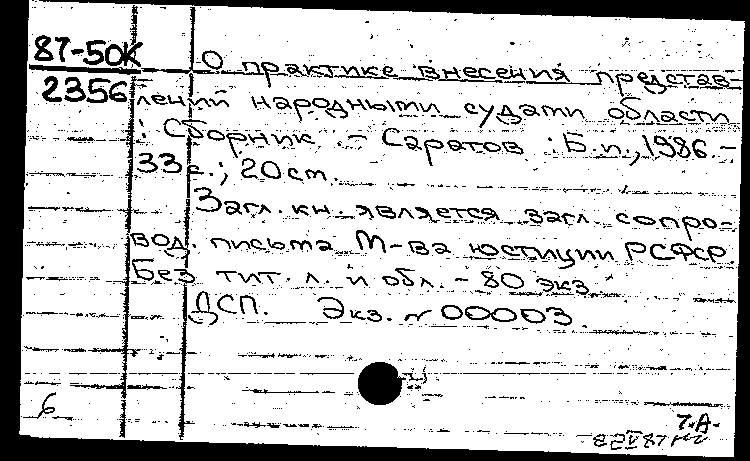 87-50К О практике внесения представ-
2356 лений народными судами области
: Сборник. - Саратов : Б.и., 1986. -
33 с.; 20 см.
Загл. кн. является загл. сопро-
вод. письма М-ва юстиции РСФСР.
Без тит. л. и обл. - 80 экз.
ДСП. Экз. N 00003.
6
7.А.